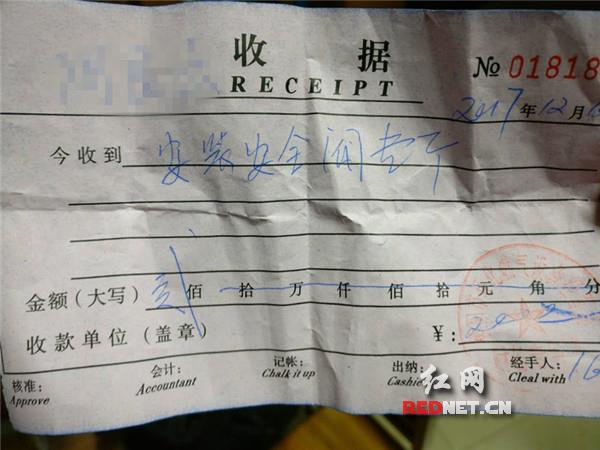 收据
RECEIPT
№ 01818
2017年12月
今收到 安装安全阀壹个
金额（大写） 贰佰拾万仟佰拾元角分
收款单位（盖章） ￥：200
核准： 会计： 记帐： 出纳： 经手人：
Approve Accountant Chalk it up Cashie Cleal with
红网
REDNET.CN